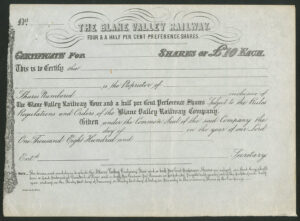 No.
THE BLANE VALLEY RAILWAY.
FOUR & A HALF PER CENT PREFERENCE SHARES.
CERTIFICATE FOR SHARES OF £10 EACH.
This is to Certify that
is the Proprietor of
Shares Numbered inclusive of
The Blane Valley Railway Four and a half per Cent Preference Shares Subject to the Rules
Regulations and Orders of the Blane Valley Railway Company.
Given under the Common Seal of the said Company the
day of in the year of our Lord
One Thousand Eight Hundred and
Entd. Secretary